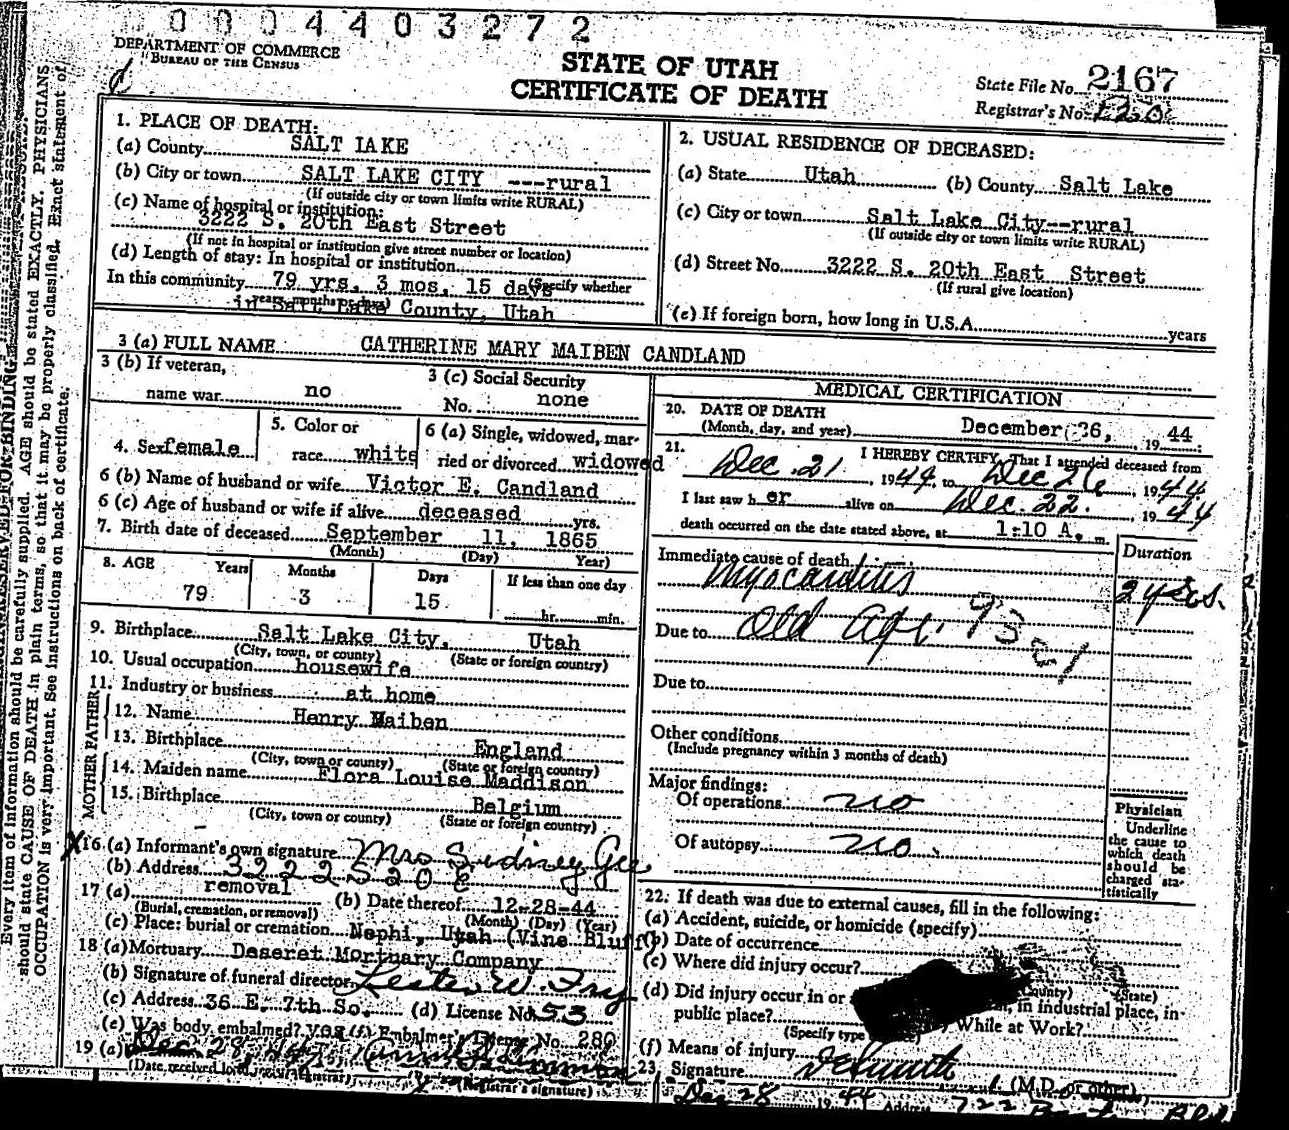 0004403272
DEPARTMENT OF COMMERCE
BUREAU OF THE CENSUS
STATE OF UTAH
CERTIFICATE OF DEATH
State File No. 2167
Registrar's No.
1. PLACE OF DEATH:
(a) County SALT LAKE
(b) City or town SALT LAKE CITY ---rural
(If outside city or town limits write RURAL)
(c) Name of hospital or institution:
3222 S. 20th East Street
(If not in hospital or institution give street number or location)
(d) Length of stay: In hospital or institution
(Specify whether
In this community 79 yrs. 3 mos. 15 days
years, months or days)
in Salt Lake County, Utah
2. USUAL RESIDENCE OF DECEASED:
(a) State Utah (b) County Salt Lake
(c) City or town Salt Lake City--rural
(If outside city or town limits write RURAL)
(d) Street No. 3222 S. 20th East Street
(If rural give location)
(e) If foreign born, how long in U.S.A. years
3 (a) FULL NAME CATHERINE MARY MAIBEN CANDLAND
3 (b) If veteran,
name war no
3 (c) Social Security
No. none
4. Sex female
5. Color or
race white
6 (a) Single, widowed, mar-
ried or divorced widowed
6 (b) Name of husband or wife Victor E. Candland
6 (c) Age of husband or wife if alive deceased yrs.
7. Birth date of deceased September 11, 1865
(Month) (Day) Year)
8. AGE Years Months Days If less than one day
79 3 15 hr. min.
9. Birthplace Salt Lake City, Utah
(City, town, or county) (State or foreign country)
10. Usual occupation housewife
11. Industry or business at home
FATHER
12. Name Henry Maiben
13. Birthplace England
(City, town or county) (State or foreign country)
MOTHER
14. Maiden name Flora Louise Maddison
15. Birthplace Belgium
(City, town or county) (State or foreign country)
X16 (a) Informant's own signature Mrs Sidney Gee
(b) Address 3222 S 20 E
17 (a) removal (b) Date thereof 12-28-44
(Burial, cremation, or removal) (Month) (Day) (Year)
(c) Place: burial or cremation Nephi, Utah (Vine Bluff)
18 (a) Mortuary Deseret Mortuary Company
(b) Signature of funeral director Lester W. Fry
(c) Address 36 E. 7th So. (d) License No. 53
(e) Was body embalmed? yes (f) Embalmer's License No. 280
19 (a) Dec 28, 1944
(Date received local registrar) (Registrar's signature)
MEDICAL CERTIFICATION
20. DATE OF DEATH
(Month, day, and year) December 26, 19 44
21. I HEREBY CERTIFY, That I attended deceased from
Dec. 21, 1944, to Dec 26, 1944
I last saw h er alive on Dec. 22. 1944
death occurred on the date stated above, at 1:10 A. m.
Immediate cause of death Duration
Myocarditis 2 yrs.
Due to Old Age. 93 d
Due to
Other conditions
(Include pregnancy within 3 months of death)
Major findings:
Of operations no
Of autopsy no.
Physician
Underline
the cause to
which death
should be
charged sta-
tistically
22. If death was due to external causes, fill in the following:
(a) Accident, suicide, or homicide (specify)
(b) Date of occurrence
(c) Where did injury occur?
County) (State)
(d) Did injury occur in or
, in industrial place, in
public place?
(Specify type While at Work?
(f) Means of injury
23. Signature
(M.D. or other)
Dec 28 1944 Address 722
Every item of information should be carefully supplied. AGE should be stated EXACTLY. PHYSICIANS
should state CAUSE OF DEATH in plain terms, so that it may be properly classified. Exact statement of
OCCUPATION is very important. See instructions on back of certificate.